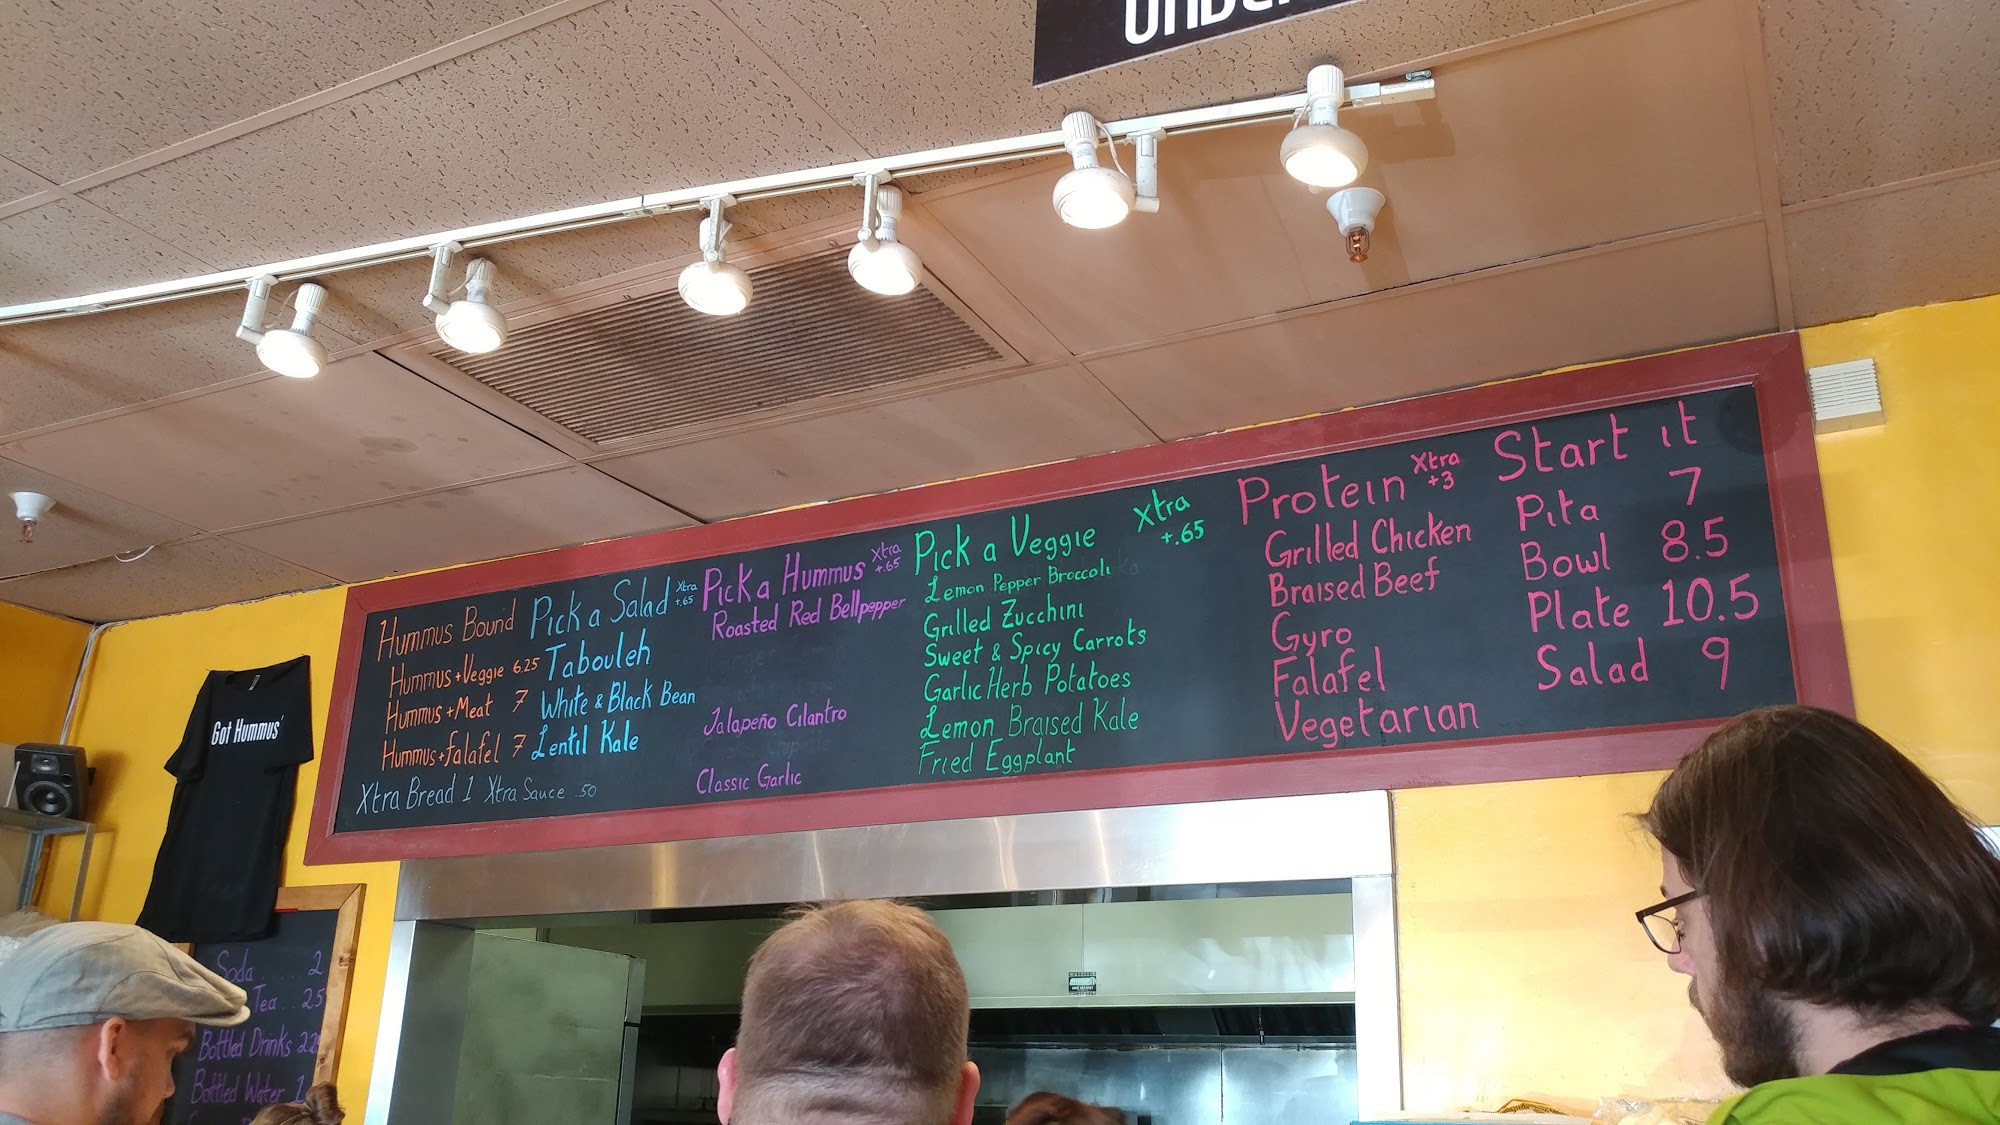 Start it
Pita 7
Bowl 8.5
Plate 10.5
Salad 9
Protein Xtra +3
Grilled Chicken
Braised Beef
Gyro
Falafel
Vegetarian
Pick a Veggie Xtra +.65
Lemon Pepper Broccoli
Grilled Zucchini
Sweet & Spicy Carrots
Garlic Herb Potatoes
Lemon Braised Kale
Fried Eggplant
Pick a Hummus Xtra +.65
Roasted Red Bellpepper
Jalapeño Cilantro
Classic Garlic
Pick a Salad Xtra +.65
Tabouleh
White & Black Bean
Lentil Kale
Hummus Bound
Hummus + Veggie 6.25
Hummus + Meat 7
Hummus + falafel 7
Xtra Bread 1 Xtra Sauce .50
Got Hummus'
Soda ...... 2
Tea .. 2.5
Bottled Drinks
Bottled Water 1